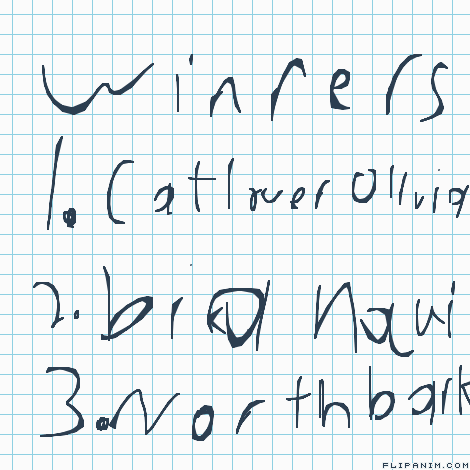 winners
1. Catlover Ollivia
2. bird
3. Northbark
FLIPANIM.COM